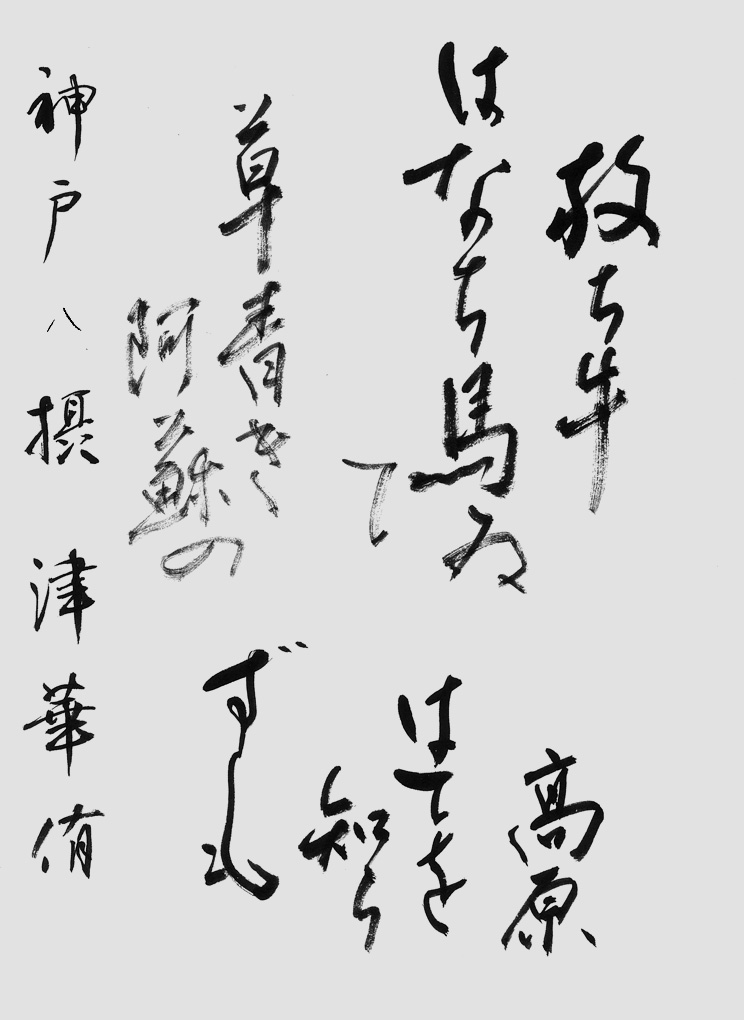 放ち牛
はなち馬ゐ
て
草青き
阿蘇の
高原
はてを
知ら
ずしも
神戸 八 摂 津華侑